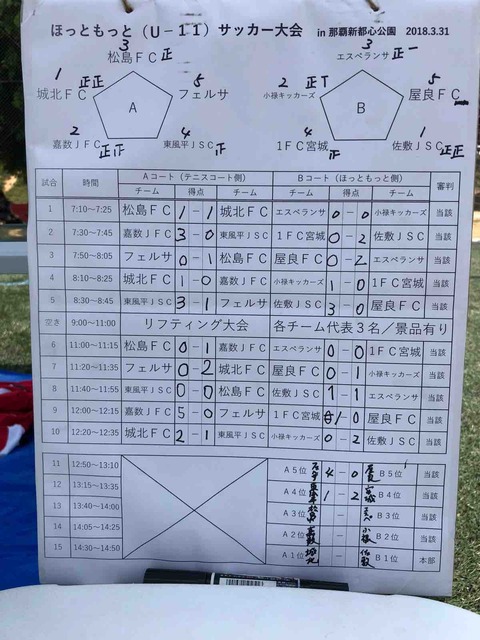 ほっともっと（U－11）サッカー大会 in 那覇新都心公園 2018.3.31
3 3
松島ＦＣ 正 エスペランサ 正一
1 正正 5 2 正T 5
城北ＦＣ A フェルサ 小禄キッカーズ B 屋良ＦＣ
2 4 4 1
嘉数ＪＦＣ 正正 東風平ＪＳＣ 正 1ＦＣ宮城 正 佐敷ＪＳＣ 正正
試合 時間 Aコート（テニスコート側） Bコート（ほっともっと側） 審判
チーム 得点 チーム チーム 得点 チーム
1 7:10～7:25 松島ＦＣ 1 － 1 城北ＦＣ エスペランサ 0 － 0 小禄キッカーズ 当該
2 7:30～7:45 嘉数ＪＦＣ 3 － 0 東風平ＪＳＣ 1ＦＣ宮城 0 － 2 佐敷ＪＳＣ 当該
3 7:50～8:05 フェルサ 0 － 1 松島ＦＣ 屋良ＦＣ 0 － 2 エスペランサ 当該
4 8:10～8:25 城北ＦＣ 1 － 0 嘉数ＪＦＣ 小禄キッカーズ 1 － 0 1ＦＣ宮城 当該
5 8:30～8:45 東風平ＪＳＣ 3 － 1 フェルサ 佐敷ＪＳＣ 3 － 0 屋良ＦＣ 当該
空き 9:00～11:00 リフティング大会 各チーム代表３名／景品有り
6 11:00～11:15 松島ＦＣ 0 － 1 嘉数ＪＦＣ エスペランサ 0 － 0 1ＦＣ宮城 当該
7 11:20～11:35 フェルサ 0 － 2 城北ＦＣ 屋良ＦＣ 0 － 1 小禄キッカーズ 当該
8 11:40～11:55 東風平ＪＳＣ 0 － 0 松島ＦＣ 佐敷ＪＳＣ 1 － 1 エスペランサ 当該
9 12:00～12:15 嘉数ＪＦＣ 5 － 0 フェルサ 1ＦＣ宮城 1 － 0 屋良ＦＣ 当該
10 12:20～12:35 城北ＦＣ 2 － 1 東風平ＪＳＣ 小禄キッカーズ 0 － 2 佐敷ＪＳＣ 当該
11 12:50～13:10 A5位 4 － 0 屋良 B5位 当該
12 13:15～13:35 A4位 東風平 1 － 2 宮城 B4位 当該
13 13:40～14:00 A3位 松島 － B3位 当該
14 14:05～14:25 A2位 嘉数 － 小禄 B2位 当該
15 14:30～14:50 A1位 城北 － 佐敷 B1位 本部